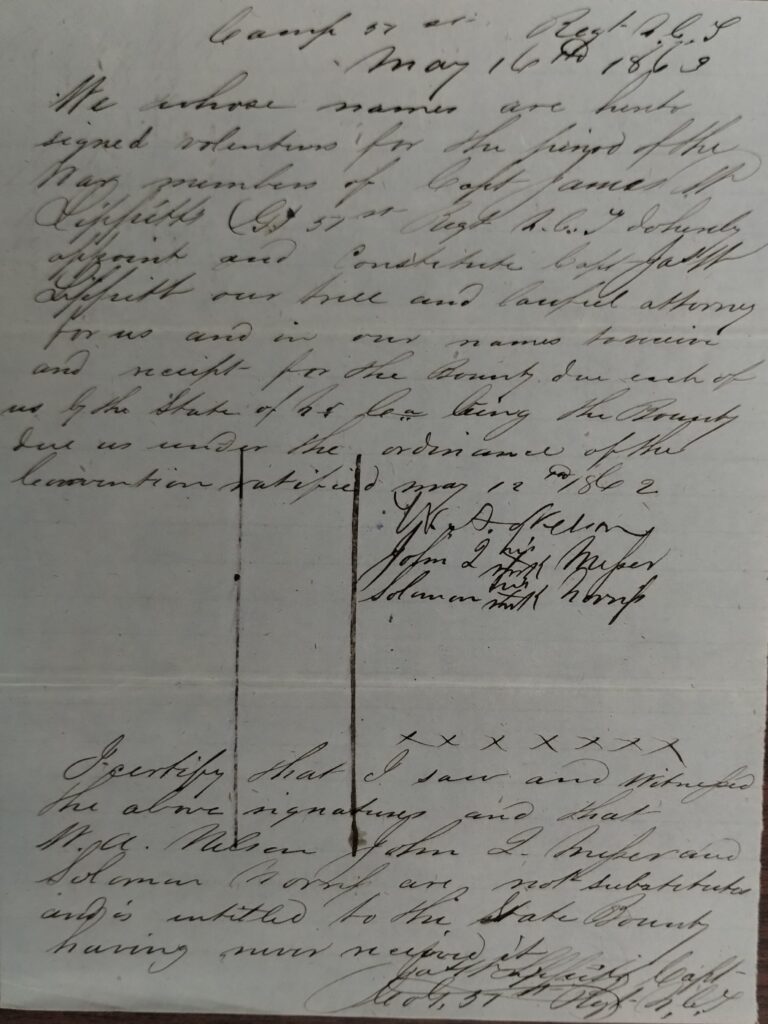 Camp 51st Regt N. C. T
May 16th 1863
We whose names are hereto
signed volunteers for the period of the
War members of Capt James W
Lippitts (G) 51st Regt N. C. T do hereby
appoint and constitute Capt Jas W
Lippitt our true and lawful attorney
for us and in our names to receive
and receipt for the Bounty due each of
us by the State of being the Bounty
due us under the ordinance of the
Convention ratified may 12 1862
W. A. Nelson
John Q his mark Messer
Solomon his mark Norris
x x x x x x x
I certify that I saw and witnessed
the above signatures and that
W. A. Nelson John Q. Messer and
Solomon Norris are not substitutes
and is intitled to the State Bounty
having never received it
Jas W Lippitt Capt
Co G, 51st Regt N. C. T